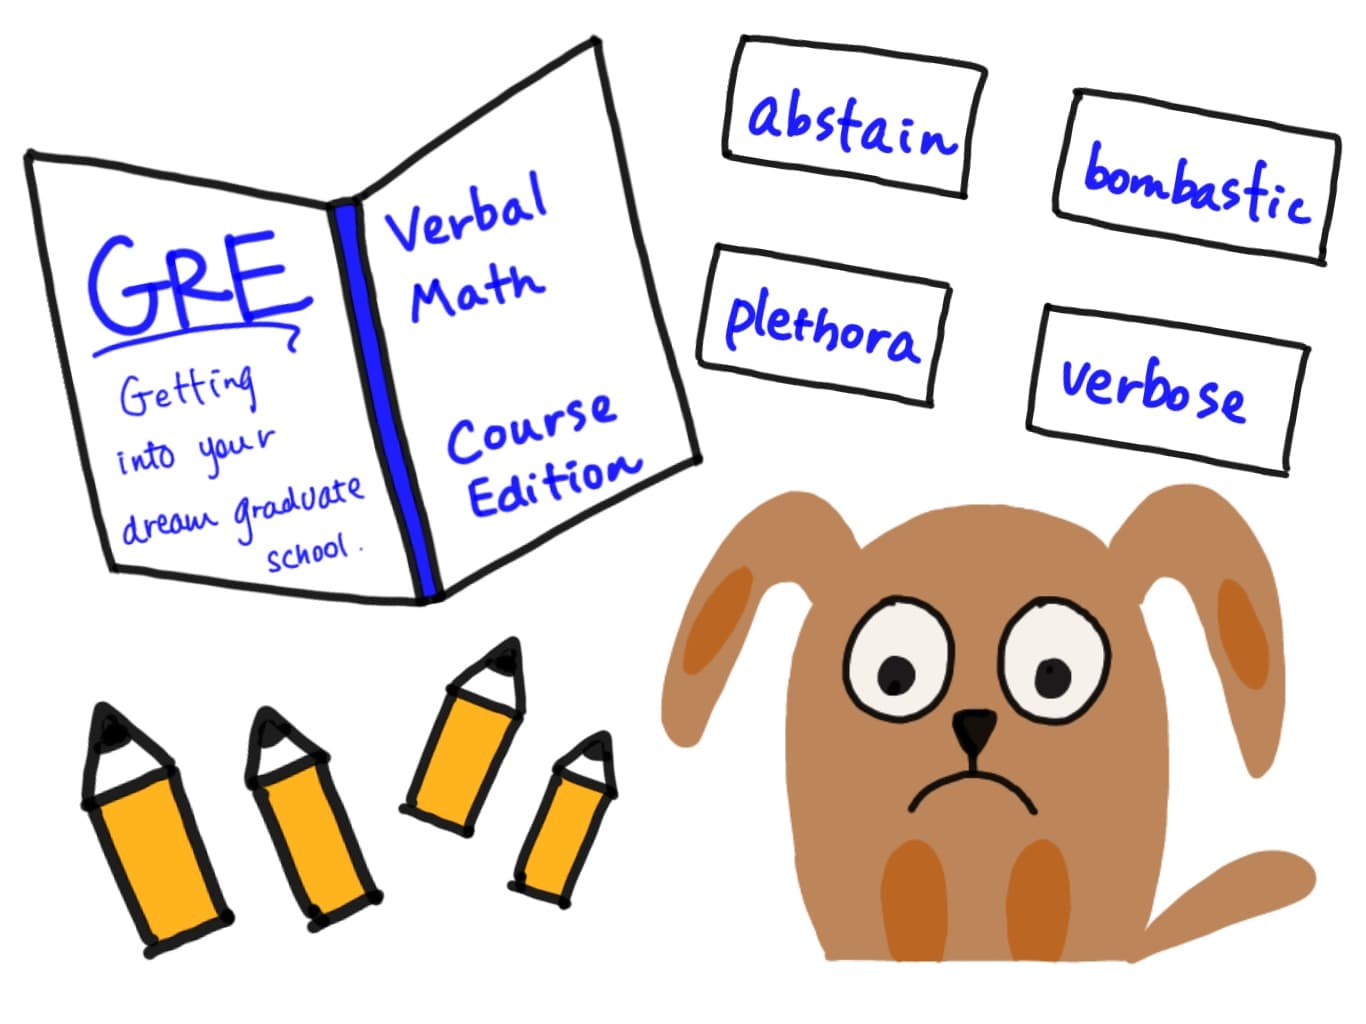 GRE
Getting
into your
dream graduate
school.
Verbal
Math
Course
Edition
abstain
bombastic
plethora
verbose